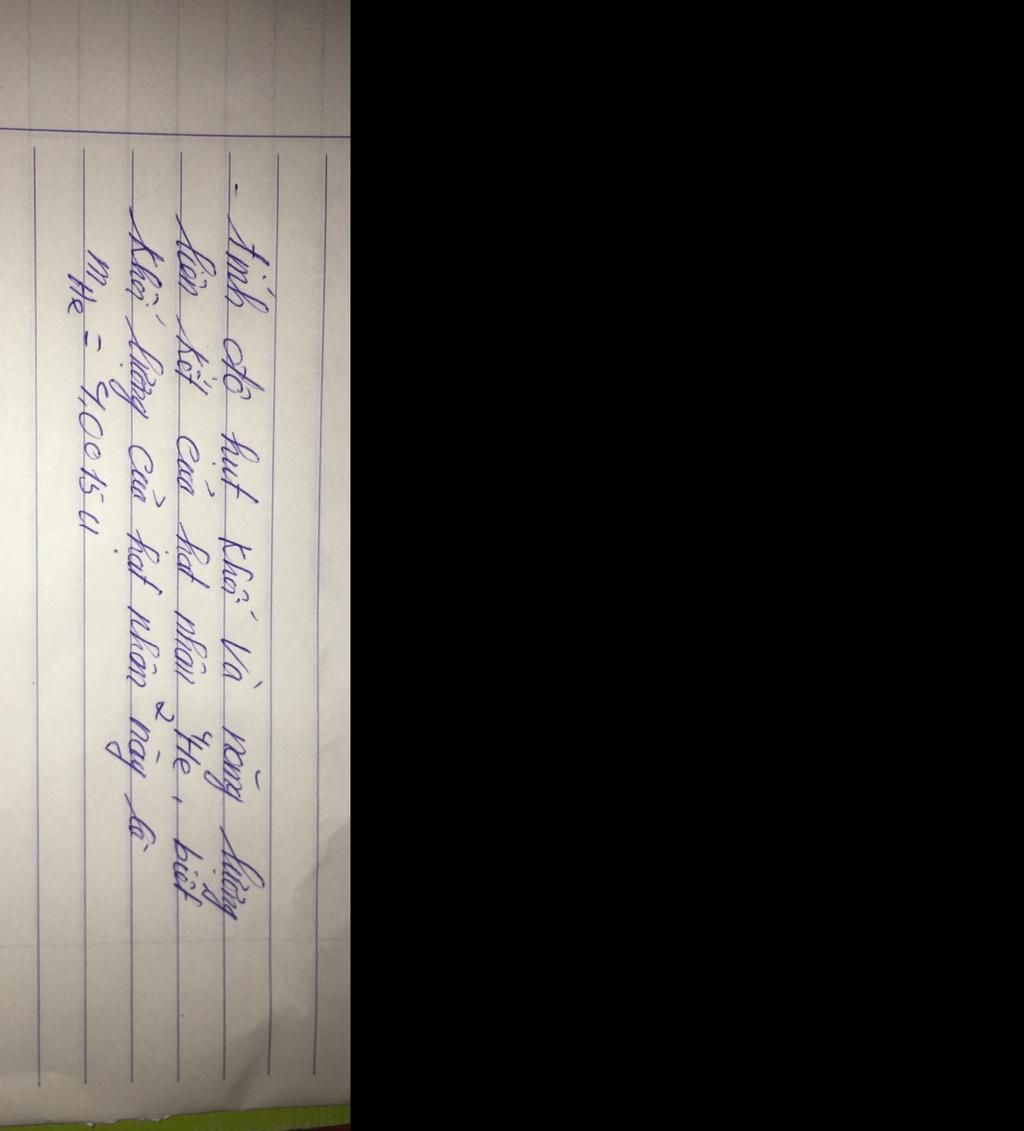 - tính độ hụt khối và năng lượng
liên kết của hạt nhân ⁴₂He, biết
Khối lượng của hạt nhân này là
mHe = 4,0015 u